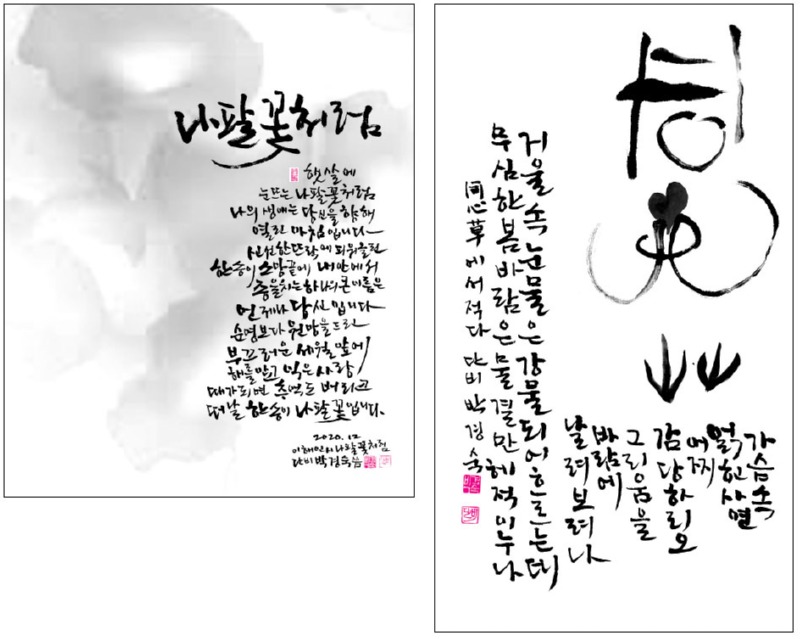 나팔꽃처럼
햇살에
눈뜨는 나팔꽃처럼
나의 생애는 당신을 향해
열린 아침입니다
신선한뜨락에 피워올린
한송이 소망끝에 내안에서
종을치는 하나의큰이름은
언제나 당신입니다
순명보다 원망을드린
부끄러운 세월앞에
해를안고 익은사랑
때가되면 추억도 버리고
떠날 한송이 나팔꽃입니다.
2020. 12
이해인시 나팔꽃처럼
단비 박경숙 씀
同心艸
가슴속
얽힌사연
어찌
감당하리오
그리움을
바람에
날려보려나
거울속 눈물은 강물되어흐르는데
무심한봄바람은 물결만 헤적이누나
同心草에서적다 단비 박경숙